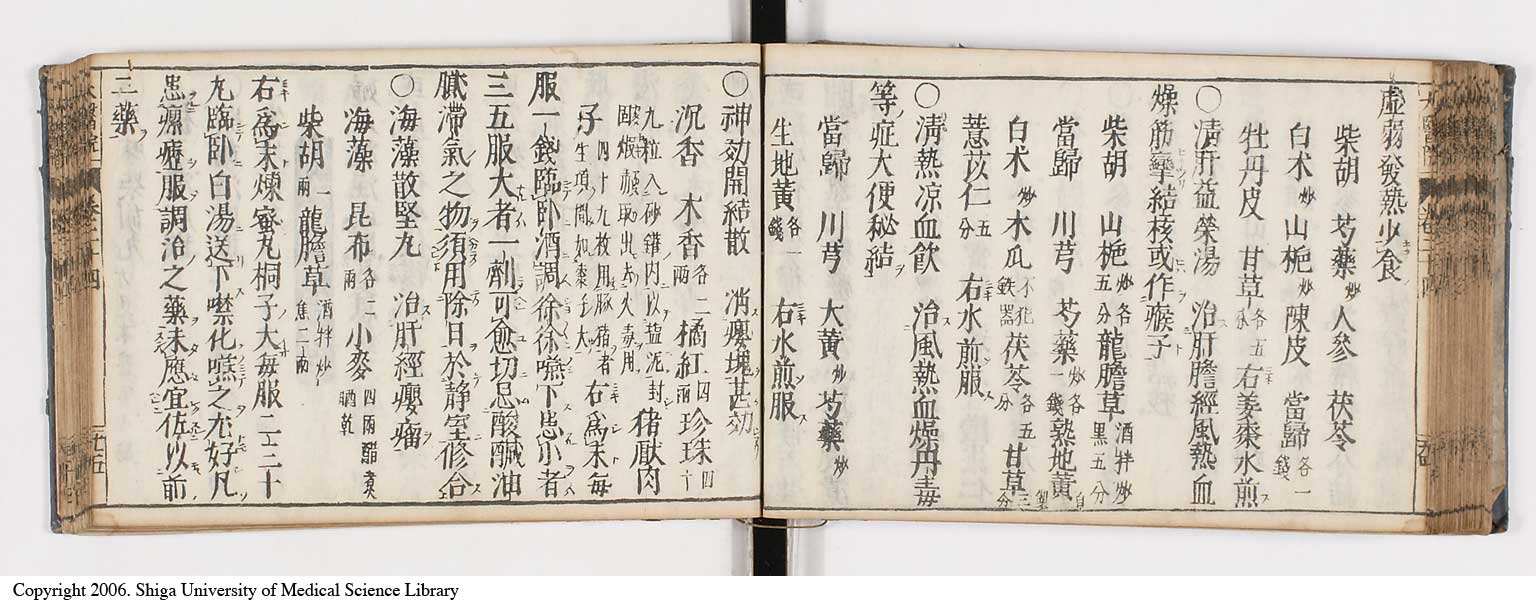 虚弱發熱少食
柴胡 芍藥炒 人參 茯苓
白朮炒 山梔炒 陳皮 當歸各一錢
牡丹皮 甘草各五分 右姜棗水煎
○清肝益榮湯 治肝膽經風熱血
燥筋攣結核或作瘊子
柴胡 山梔炒各五分 龍膽草酒拌炒黑五分
當歸 川芎 芍藥炒各一錢 熟地黄自製
白朮炒 木瓜不犯鉄器 茯苓各五分 甘草三分
薏苡仁五分 右水煎服
○淸熱凉血飲 治風熱血燥丹毒
等症大便秘結
當歸 川芎 大黄炒 芍藥炒
生地黄各一錢 右水煎服
○神効開結散 消癭塊甚効
沉香 木香各二兩 橘紅四兩 珍珠四十
九粒入砂鑵内以盐泥封
固煅赤取出去火毒用 猪厭肉
子生項間如棗子大
四十九枚用豚猪者 右爲末毎
服一錢臨卧酒調徐徐嚥下患小者
三五服大者一劑可愈切忌酸鹹油
膩滯氣之物須用除日於靜室修合
○海藻散堅丸 治肝經癭瘤
海藻 昆布各二兩 小麥四兩醋煮晒乾
柴胡一兩 龍膽草酒拌炒焦二兩
右爲末煉蜜丸桐子大毎服二三十
丸臨卧白湯送下噙化嚥之尤好凡
患瘰癧服調治之藥未應宜佐以前
二藥
Copyright 2006. Shiga University of Medical Science Library